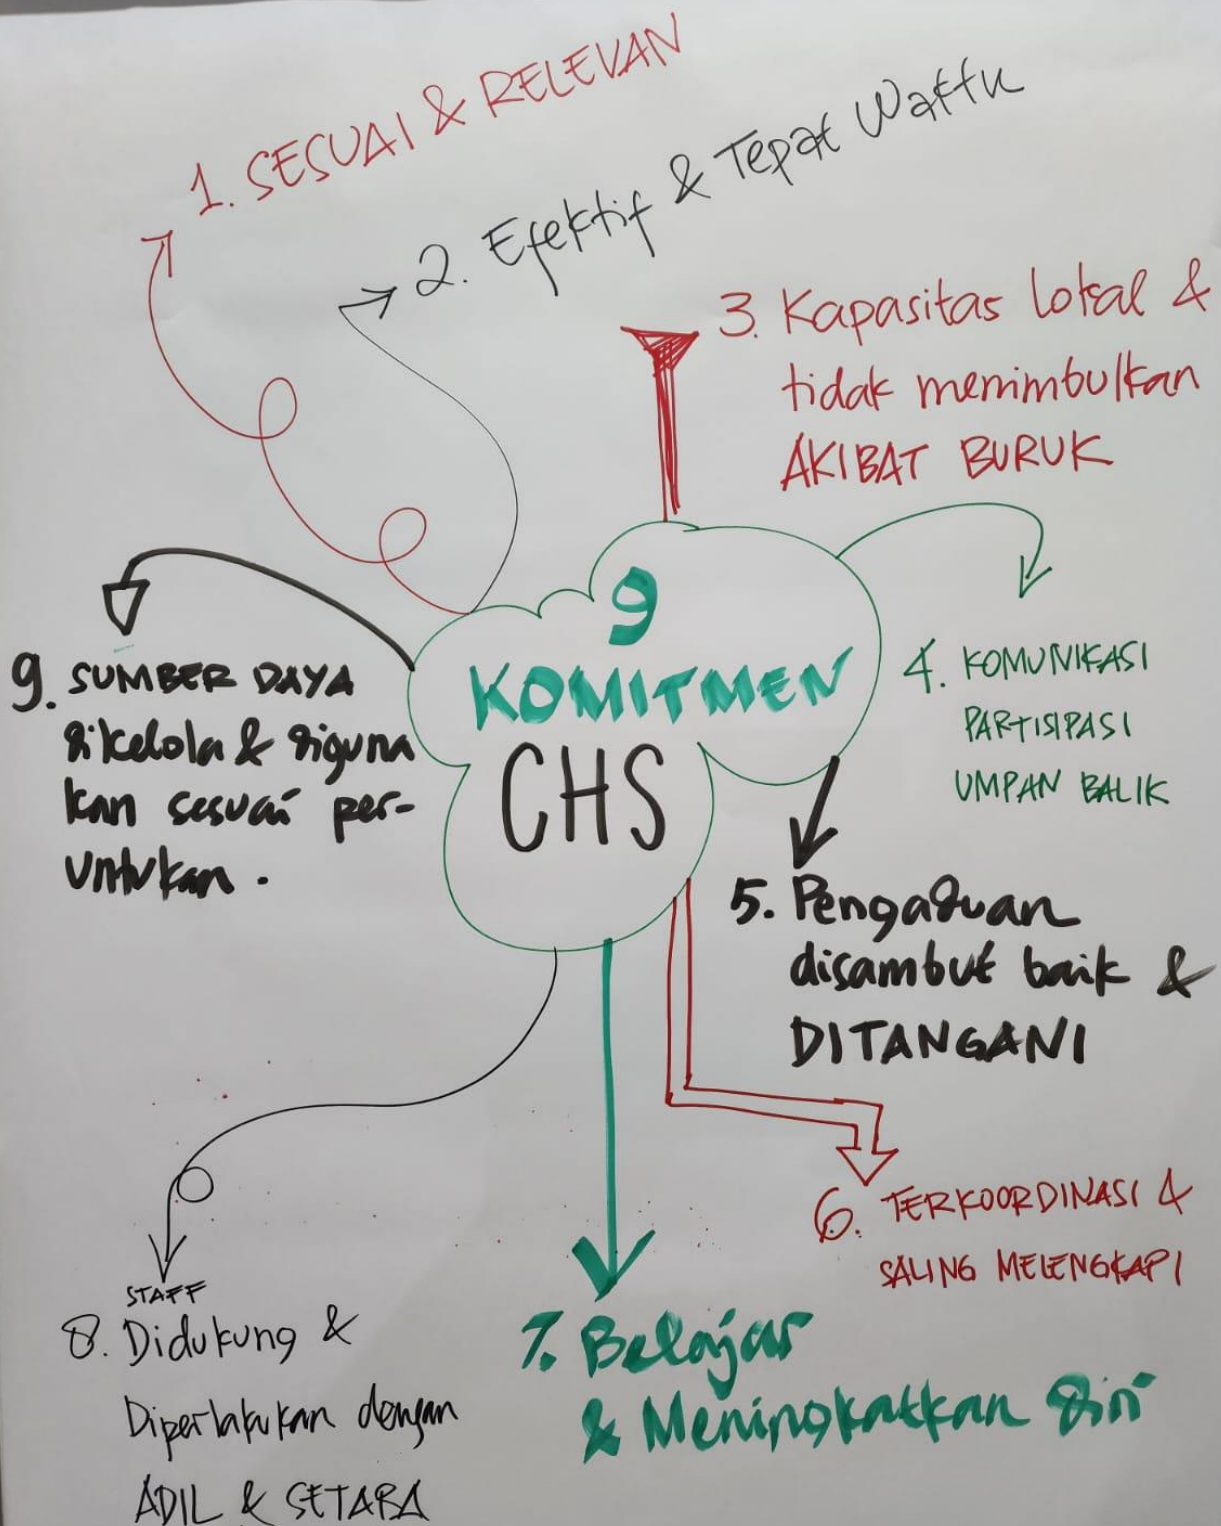 9
KOMITMEN
CHS
1. SESUAI & RELEVAN
2. Efektif & Tepat Waktu
3. Kapasitas lokal &
tidak menimbulkan
AKIBAT BURUK
4. KOMUNIKASI
PARTISIPASI
UMPAN BALIK
5. Pengaduan
disambut baik &
DITANGANI
6. TERKOORDINASI &
SALING MELENGKAPI
7. Belajar
& Meningkatkan diri
STAFF
8. Didukung &
Diperlakukan dengan
ADIL & SETARA
9. SUMBER DAYA
dikelola & diguna
kan sesuai per-
untukan.